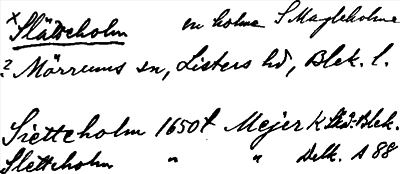 x Slätteholm en holme S Magleholme
? Mörrums sn, Listers hd, Blek. l.
Sietteholm 1650t Mejer K Skå-Blek.
Sletteholm " " Delk. A 88